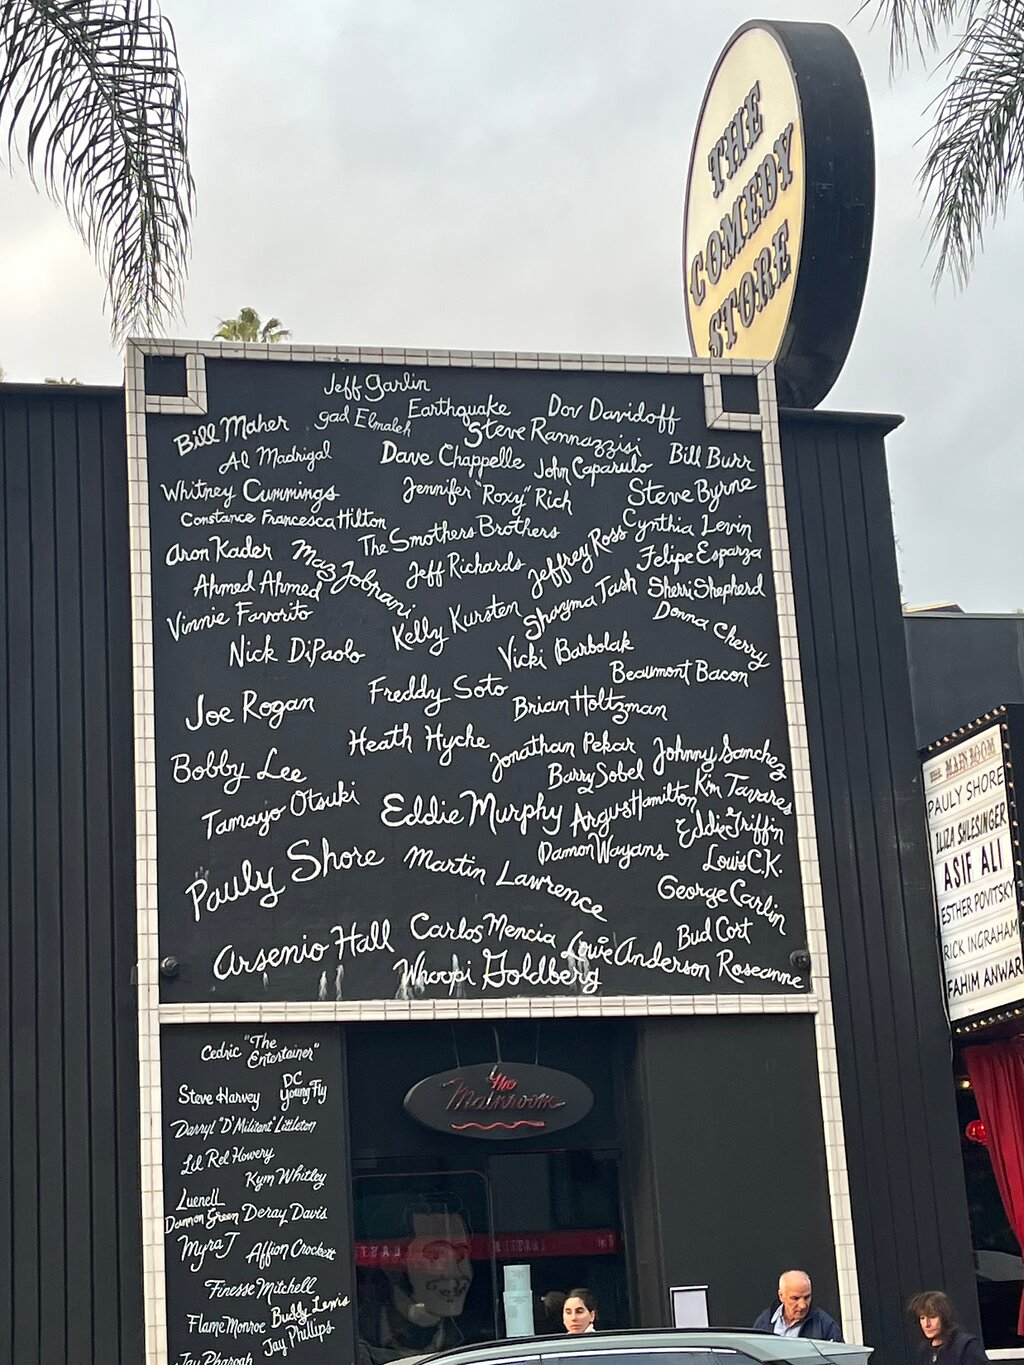 THE
COMEDY
STORE
Jeff Garlin
Bill Maher
gad Elmaleh
Earthquake
Dov Davidoff
Steve Rannazzisi
Al Madrigal
Dave Chappelle
John Caparulo
Bill Burr
Whitney Cummings
Jennifer "Roxy" Rich
Steve Byrne
Constance Francesca Hilton
The Smothers Brothers
Jeffrey Ross
Cynthia Levin
Aron Kader
Maz Jobrani
Jeff Richards
Felipe Esparza
Ahmed Ahmed
Shayma Tash
Sherri Shepherd
Vinnie Favorito
Kelly Kursten
Donna Cherry
Nick DiPaolo
Vicki Barbolak
Beaumont Bacon
Joe Rogan
Freddy Soto
Brian Holtzman
Heath Hyche
Jonathan Pekar
Johnny Sanchez
Bobby Lee
Barry Sobel
Kim Tavares
Tamayo Otsuki
Eddie Murphy
Argus Hamilton
Eddie Griffin
Damon Wayans
Louis C.K.
Pauly Shore
Martin Lawrence
George Carlin
Arsenio Hall
Carlos Mencia
Bud Cort
Louie Anderson
Roseanne
Whoopi Goldberg
MAIN ROOM
PAULY SHORE
ILIZA SHLESINGER
ASIF ALI
ESTHER POVITSKY
RICK INGRAHAM
FAHIM ANWAR
Cedric "The
Entertainer"
Steve Harvey
DC
Young Fly
Darryl "D'Militant" Littleton
Lil Rel Howery
Kym Whitley
Luenell
Damon Green
Deray Davis
Myra J
Affion Crockett
Finesse Mitchell
Flame Monroe
Buddy Lewis
Jay Phillips
Jay Pharoah
The
Mainroom